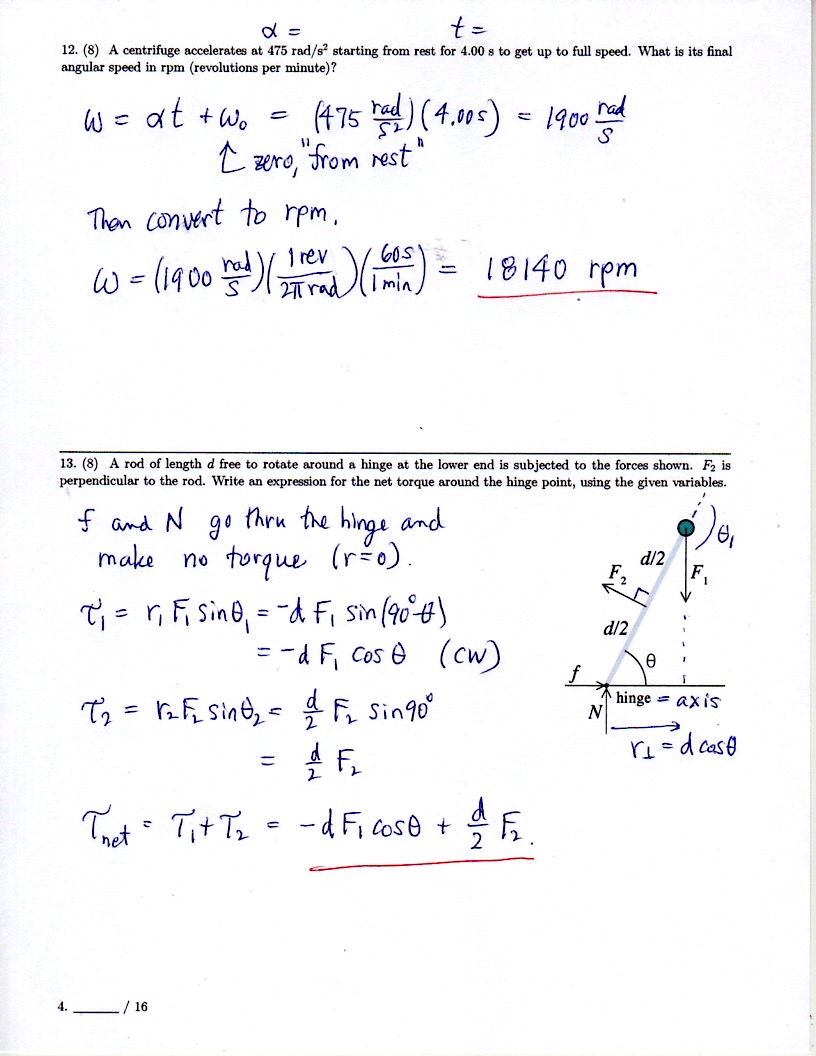 α =    t =
12. (8) A centrifuge accelerates at 475 rad/s² starting from rest for 4.00 s to get up to full speed. What is its final
angular speed in rpm (revolutions per minute)?
ω = αt + ω₀ = (475 rad/s²)(4.00s) = 1900 rad/s
↑ zero, "from rest"
Then convert to rpm.
ω = (1900 rad/s)(1 rev/2π rad)(60s/1 min) = 18140 rpm
13. (8) A rod of length d free to rotate around a hinge at the lower end is subjected to the forces shown. F₂ is
perpendicular to the rod. Write an expression for the net torque around the hinge point, using the given variables.
f and N go thru the hinge and
make no torque (r=0).
τ₁ = r₁ F₁ sinθ₁ = -d F₁ sin(90°-θ)
= -d F₁ cos θ (CW)
τ₂ = r₂F₂ sinθ₂ = d/2 F₂ sin90°
= d/2 F₂
τnet = τ₁+τ₂ = -dF₁ cosθ + d/2 F₂.
θ₁
d/2
F₂
F₁
d/2
θ
f
hinge = axis
N
r⊥ = d cosθ
4. ______ / 16